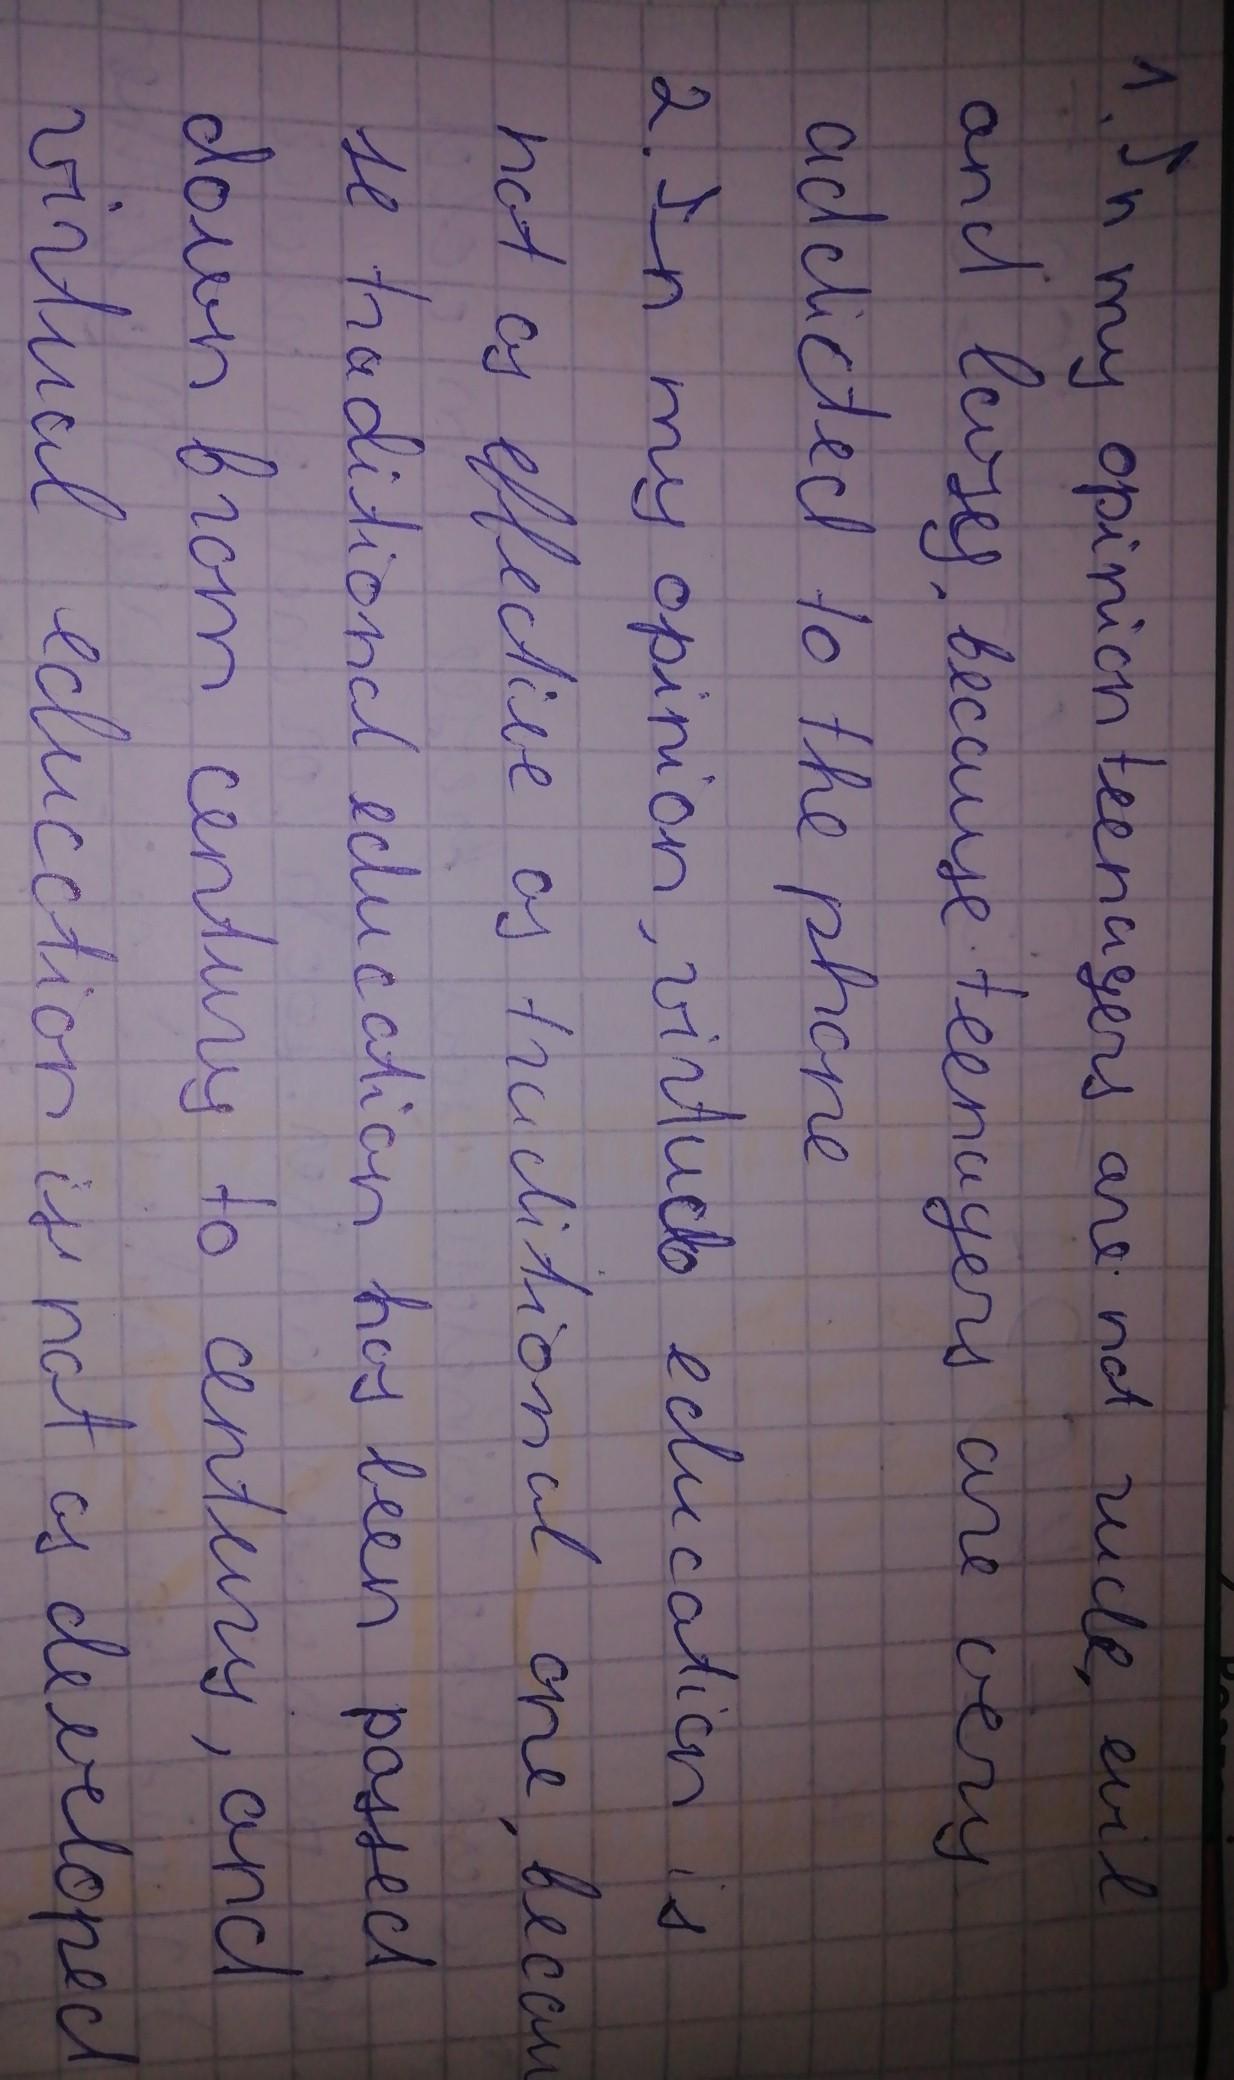 1. In my opinion teenagers are not rude, evil
and lawsey, because teenagers are very
addicted to the phone
2. In my opinion, virtual education is
not as effective as traditional one, becau
se traditional education has been passed
down from century to century, and
virtual eduction is not as developed